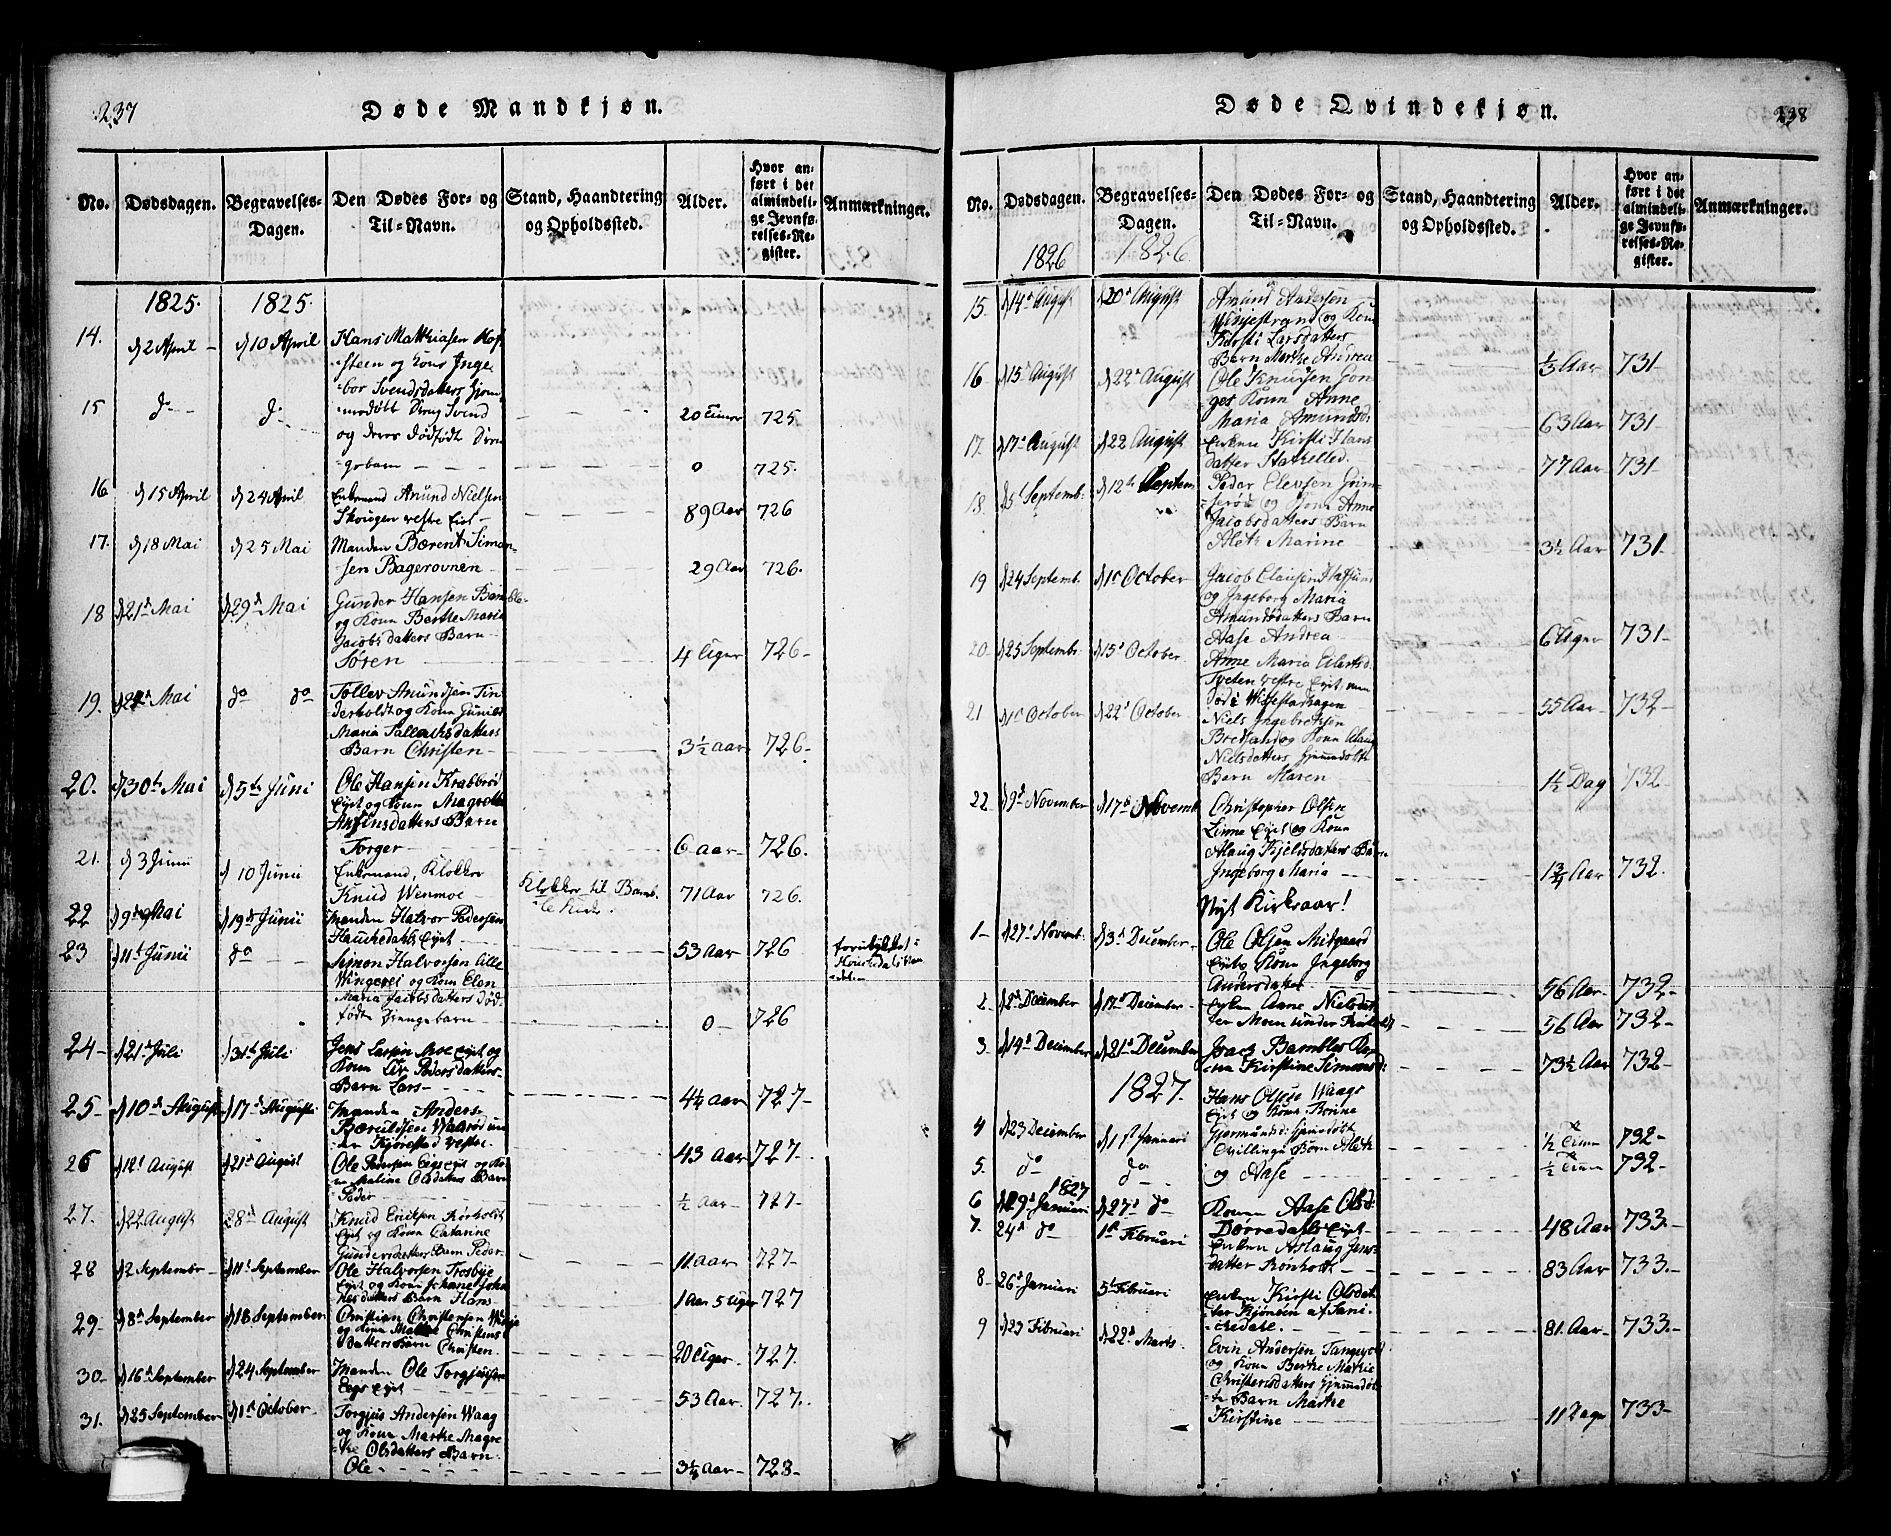 237
Døde Mandkjøn.
No. Dødsdagen. Begravelses-Dagen. Den Dødes For- og Til-Navn. Stand, Haandtering og Opholdssted. Alder. Hvor anført i det almindelige Jevnførelses-Register. Anmærkninger.
1825. 1825.
14. d 2 April - d 10 April Hans Matthiasen Hof-
steen og Kone Inge-
bor Svendsdatters Hjem-
15 do do medøbt Dreng Svend 20 Timer 725
og deres dødfødt Dren-
gebarn 0 725.
16 d 15 April d 24 April Enkemand Amund Nielsen
Skougen vestre Eyet 89 Aar 726
17. d 18 Mai d 25 Mai Manden Bærent Simon-
sen Bagerovnen 29 Aar 726.
18 d 21d Mai d 29d Mai Gunder Hansen Bamble-
og Kone Berthe Maria
Jacobsdatters Barn
Søren 4 Uger 726-
19. d 24 Mai do do Tollev Amundsen Tin-
derholdt og Kone Gunild
Maria
Barn Christen 3½ aar 726-
20. d 30th Mai d 5th Juni Ole Hansen Krabberød
Eyet og Kone Magrethe
Anfinsdatters Barn
Torger 6 aar 726.
21. d 3 Junii d 10 Junii Enkemand, Klokker Klokker til Bamb-
Knud Wenmoe 71 Aar 726.
22 d 9th Mai d 19th Junii Manden Halvor Pedersen
Haukedals Eyet 53 Aar 726
23 d 11t Junii do Simon Halvorsen Lille
Wingerei og Kone Elen
Maria Jacobsdatters død-
fødte Drengebarn 0 726
24 d 21d Juli d 31t Juli Jens Larsen Moe Eyet og
Kone Liv Pedersdatters
Barn Lars 4¼ Aar 727-
25 d 10de August d 17de Augusti Manden Anders
Bæruldsen Waarød un-
der Kjørestad vestre 43 Aar 727.
26 d 12t August d 21d August Ole Pedersen Eegs eyet og Ko-
ne Maline Olsdatters Barn
Peder ½ Aar 727-
27. d 22 August 28d August Knud Eriksen Kørholdt
Eyet og Kone Catarine
Gundersdatters Barn Peder 11 Aar 727
28 d 2 September d 11t September Ole Halvorsen Trosbye
Eyet og Kone Johane Joha-
nesdatters Barn Hans 1 Aar 5 Uger 727
29 d 8d September d 18 September Christian Christensen
og Kone Malene Christens
datters Barn Christen 20 Uger 727.
30 d 16d September d 24 September Manden Ole Torgjusen
Eegs Eyet 53 Aar 727.
31. d 25 September d 1st October Torgjus Andersen Waag
og Kone Marthe Magre-
the Olsdatters Barn
Ole 3¼ Aar 728-
238
Døde Qvindekjøn.
No. Dødsdagen. Begravelses-Dagen. Den Dødes For- og Til-Navn. Stand, Haandtering og Opholdssted. Alder. Hvor anført i det almindelige Jevnførelses-Register. Anmærkninger.
1826 1826
15. d 14d August d 20d August Amund Andersen
Wisjestrand og Kone
Kirsti Larsdatters
Barn Marthe Andrea ⅓ Aar 731
16 d 15 August d 22d August Ole Knudsen Gon-
ges Kone Anne
Maria Amundsd: 63 Aar 731
17. d 17d August d 22 August Enken Kirsti Hans-
datter Stathelled 77 Aar 731
18 d 5t Septemb: d 12te Septem Peder Elevsen
og Kone Anne
Jacobsdatters Barn
Aleth Marine 3½ Aar 731
19 d 24 Septemb. d 1t October Jacob Clausen Hafsund
og Ingeborg Maria
Amundsdatters Barn
Aase Andrea 6 Uger 731
20 d 25 Septembr. d 15d October Anne Maria Eilertsd.
Tveten vestre Eyet 55 Aar 732
21 d 1t October d 22d October Niels Ingebrethsen
Bredsand og Kone Alaug
Nielsdatters Hjemmedøbte
Barn Maren 1½ Dag 732
22 d 9d November d 17d Novemb. Christopher Olsen
Linne Eyet og Kone
Alaug Kjeldsdatters Barn
Ingeborg Maria 1¾ Aar 732.
Nyt Kirkeaar!
1- d 27d Novemb. d 3d December Ole Olsen Midgaard
Eyets Kone Ingeborg
Andersdatter 56 Aar 732
2 d 8d December d 17d December Enken Anne Nielsdat-
ter Moen under 56 Aar 732
3 d 14d December d 21d December Isach Bambles Ko-
ne Kirstine Simonsd: 73½ Aar 732
1827.
Hans Olsen Waags
Eyet og Kone Karine
4 d 23 December d 1st Januari Gjermundsd: Hjemmedøbt ½ Time 732-
Tvillinge Børn Aleth
5. do do og Aase ½ Time 732-
1827
6 d 19d Januari d 27d do Konen Aase Olsd:
Dørredals Eyet 48 Aar 733.
7. 24d do 1st Februari Enken Aslaug Jens-
datter Rønholt 83 Aar 733.
8 26d Januari 5t Februari Enken Kirsti Olsdat-
ter Kjønøen af Sani-
credale. 81 Aar 733
9 d 23 Februari d 22d Marts. Even Andersen Tangvald
og Kone Berthe Mathie
Christensdatters Hjemmedøb-
te Barn Marthe
Kirstine 11 Dage 733